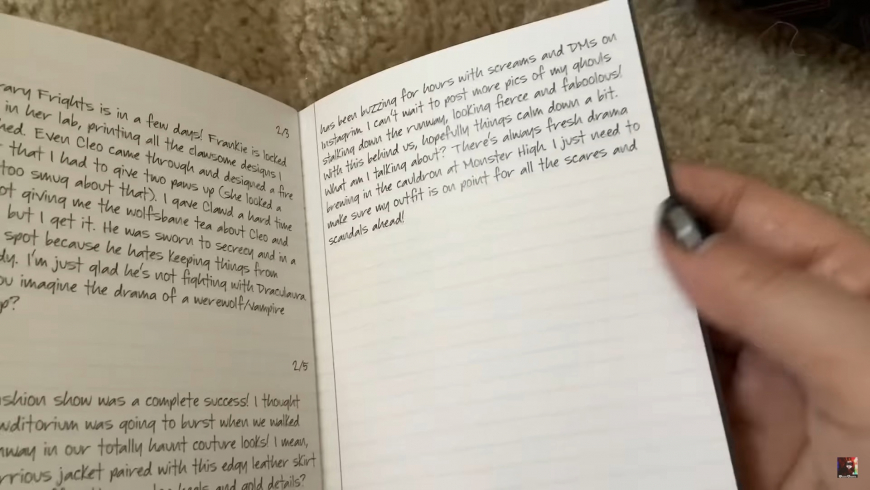 rary Frights is in a few days! Frankie is locked
in her lab, printing all the clawsome designs I
hed. Even Cleo came through and designed a fire
that I had to give two paws up (she looked a
too smug about that). I gave Clawd a hard time
ot giving me the wolfsbane tea about Cleo and
but I get it. He was sworn to secrecy and in a
spot because he hates keeping things from
dy. I'm just glad he's not fighting with Draculaura.
ou imagine the drama of a werewolf/vampire
p?
2/3
2/5
ashion show was a complete success! I thought
auditorium was going to burst when we walked
nway in our totally haunt couture looks! I mean,
rrious jacket paired with this edgy leather skirt
and gold details?
has been buzzing for hours with screams and DMs on
Instagrim. I can't wait to post more pics of my ghouls
stalking down the runway, looking fierce and faboolous!
With this behind us, hopefully things calm down a bit.
What am I talking about? There's always fresh drama
brewing in the cauldron at Monster High. I just need to
make sure my outfit is on point for all the scares and
scandals ahead!